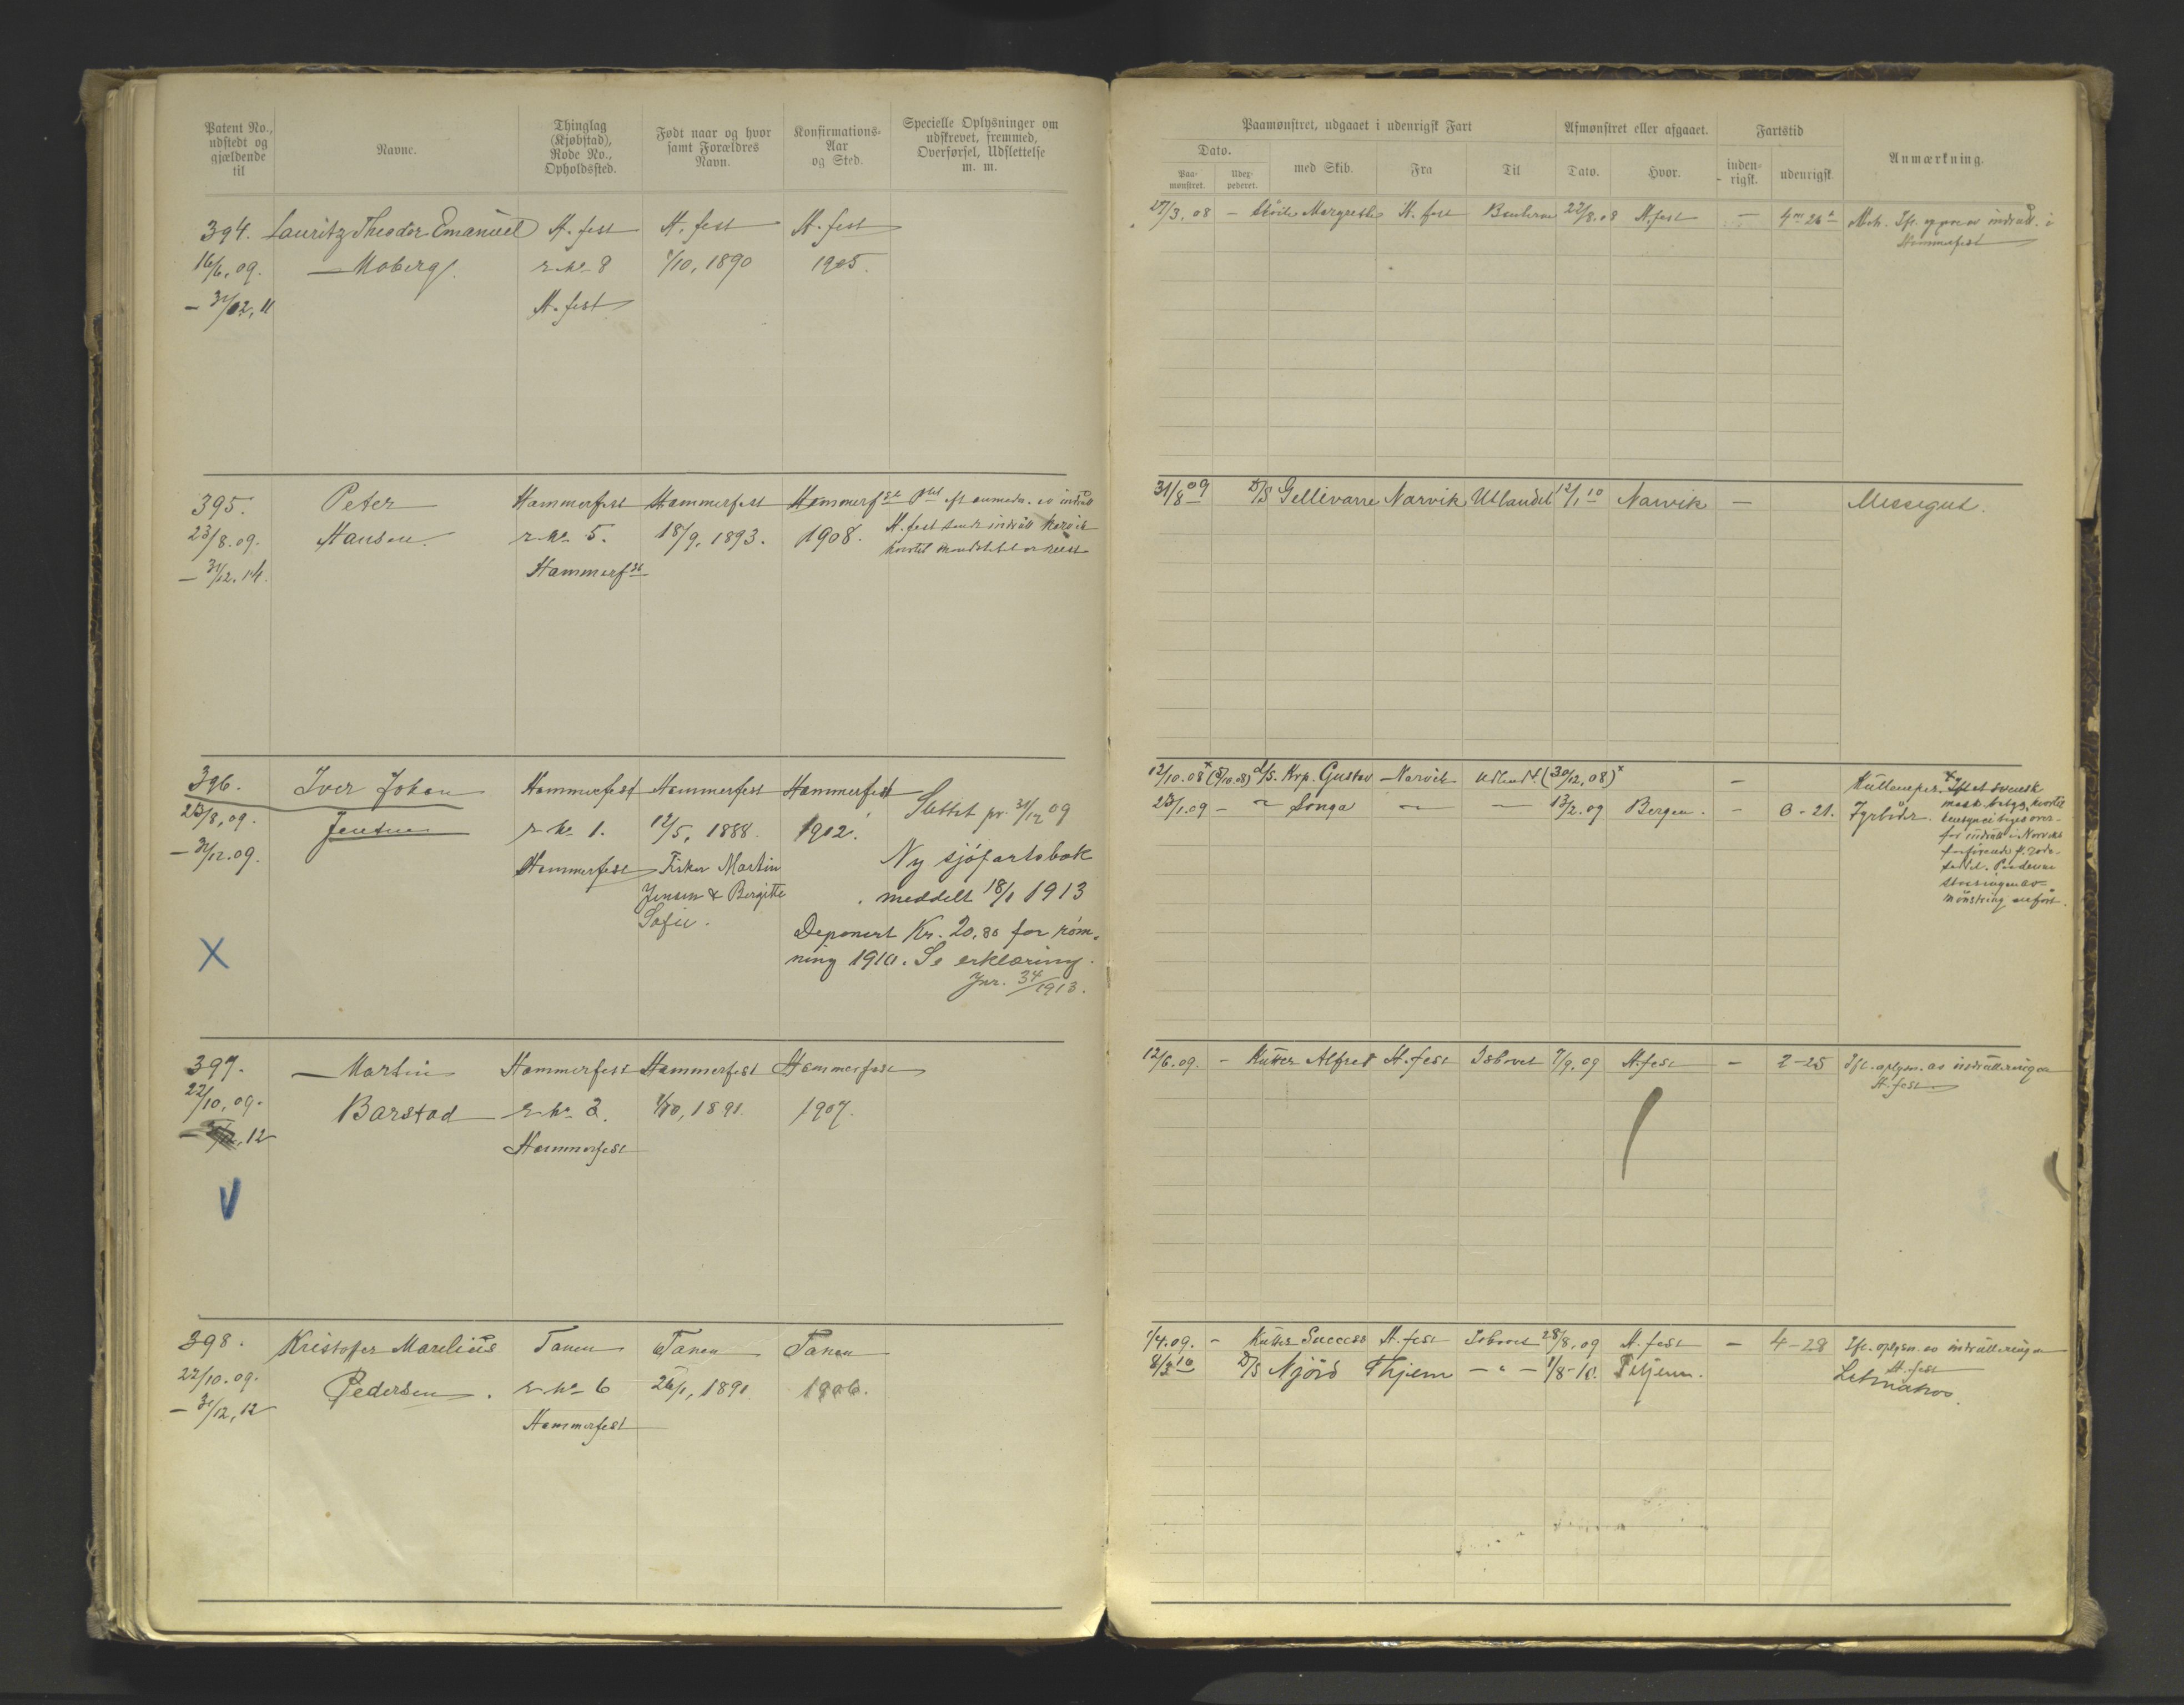 Patent No.,
udstedt og
gjældende
til
Navne.
Thinglag
(Kjøbstad),
Rode No.,
Opholdssted.
Født naar og hvor
samt Forældres
Navn.
Konfirmations-
Aar
og Sted.
Specielle Oplysninger om
udskrevet, fremmed,
Overførsel, Udslettelse
m. m.
394. Lauritz Theodor Emanuel H. fest H. fest H. fest
16/6, 09. Moberg. r. No 8 /10, 1890 1905.
– 31/12, 11 H. fest
395. Peter Hammerfest Hammerfest Hammerfest
23/8. 09. Hansen. r. No 5. 18/9, 1893. 1908. H. fest
– 31/12. 14. Hammerfest
396. Iver Johan Hammerfest Hammerfest Hammerfest Slettet pr. 31/12 09
25/8, 09. Jensen r. No 1. 12/5, 1888. 1902.
– 31/12. 09. Hammerfest Fisker Martin Ny sjöfartsbok
Jensen & Bergitte meddelt 18/1 1913
Sofie. Deponert Kr. 20,80 for röm-
X ning 1910. Se erklæring.
Jnr. 34/1913.
397. Martin Hammerfest Hammerfest Hammerfest
22/10, 09. Barstad r. No 2. /10, 1891. 1907.
12 Hammerfest
V
398. Kristoffer Marelius Tanen Tanen Tanen
22/10. 09. Pedersen. r. No 6 26/1, 1891. 1906.
– 31/12, 12 Hammerfest
Paamønstret, udgaaet i udenrigsk Fart
Afmønstret eller afgaaet.
Fartstid
Anmærkning.
Dato.
Paa-
mønstret.
Udex-
pederet.
med Skib.
Fra
Til
Dato.
Hvor.
inden-
rigsk.
udenrigsk.
27/3. 08 – Margrethe H. fest 22/8. 08 H. fest – 4 m 26 d
Hammerfest
31/8 09 D/S Gellivarre Narvik Utlandet 12/1 10 Narvik – Messegut.
12/10. 08 x (5/10. 08) d/s. Krp. Gustav Narvik Udland (30/12, 08) x –
25/1. 09 – " Songa – – 13/2. 09 Bergen. – 0–21. Fyrböder.
12/6. 09. – Kutter Alfred H. fest Ishavet 7/9. 09 H. fest – 2–25 Ifl. oplysn. av indrulleringen
H. fest
1/4. 09. – Kutter Success H. fest Ishavet 28/8, 09 H. fest – 4–28 Ifl. oplysn. av indrulleringen
H. fest
8/3 10 D/S Njörd Thjem – " – 1/8–10. Thjem. Letmatros.